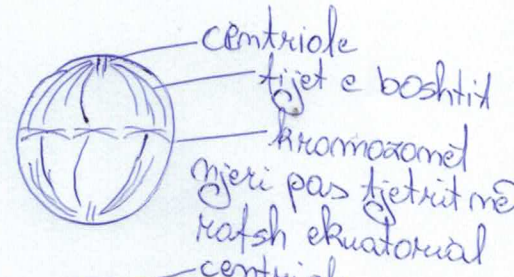 centriole
fijet e boshtit
kromozomet
njeri pas tjetrit në
rafsh ekuatorial
centriol